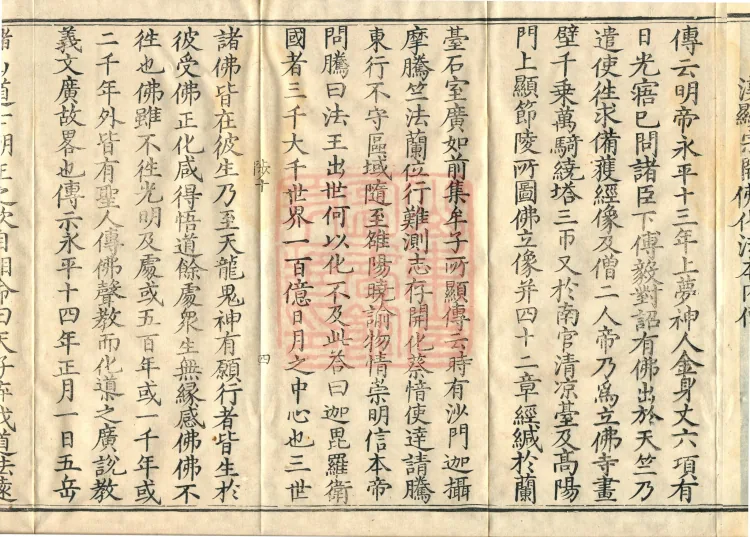 漢顯宗開佛化法本內傳
傳云明帝永平十三年上夢神人金身丈六項有
日光寤已問諸臣下傅毅對詔有佛出於天竺乃
遣使徃求備獲經像及僧二人帝乃為立佛寺畫
壁千乗萬騎繞塔三帀又於南宫清凉臺及髙陽
門上顯節陵所圖佛立像并四十二章經緘於蘭
臺石室廣如前集牟子所顯傳云時有沙門迦攝
摩騰竺法蘭位行難測志存開化蔡愔使達請騰
東行不守區域隨至雒陽曉諭物情崇明信本帝
問騰曰法王出世何以化不及此答曰迦毘羅衛
國者三千大千世界一百億日月之中心也三世
陂十
四
諸佛皆在彼生乃至天龍鬼神有願行者皆生於
彼受佛正化咸得悟道餘處衆生無緣感佛佛不
徃也佛雖不徃光明及處或五百年或一千年或
二千年外皆有聖人傳佛聲教而化導之廣説教
義文廣故畧也傳示永平十四年正月一日五岳
諸山道士朝正之次自相命曰天子弃我道法遠